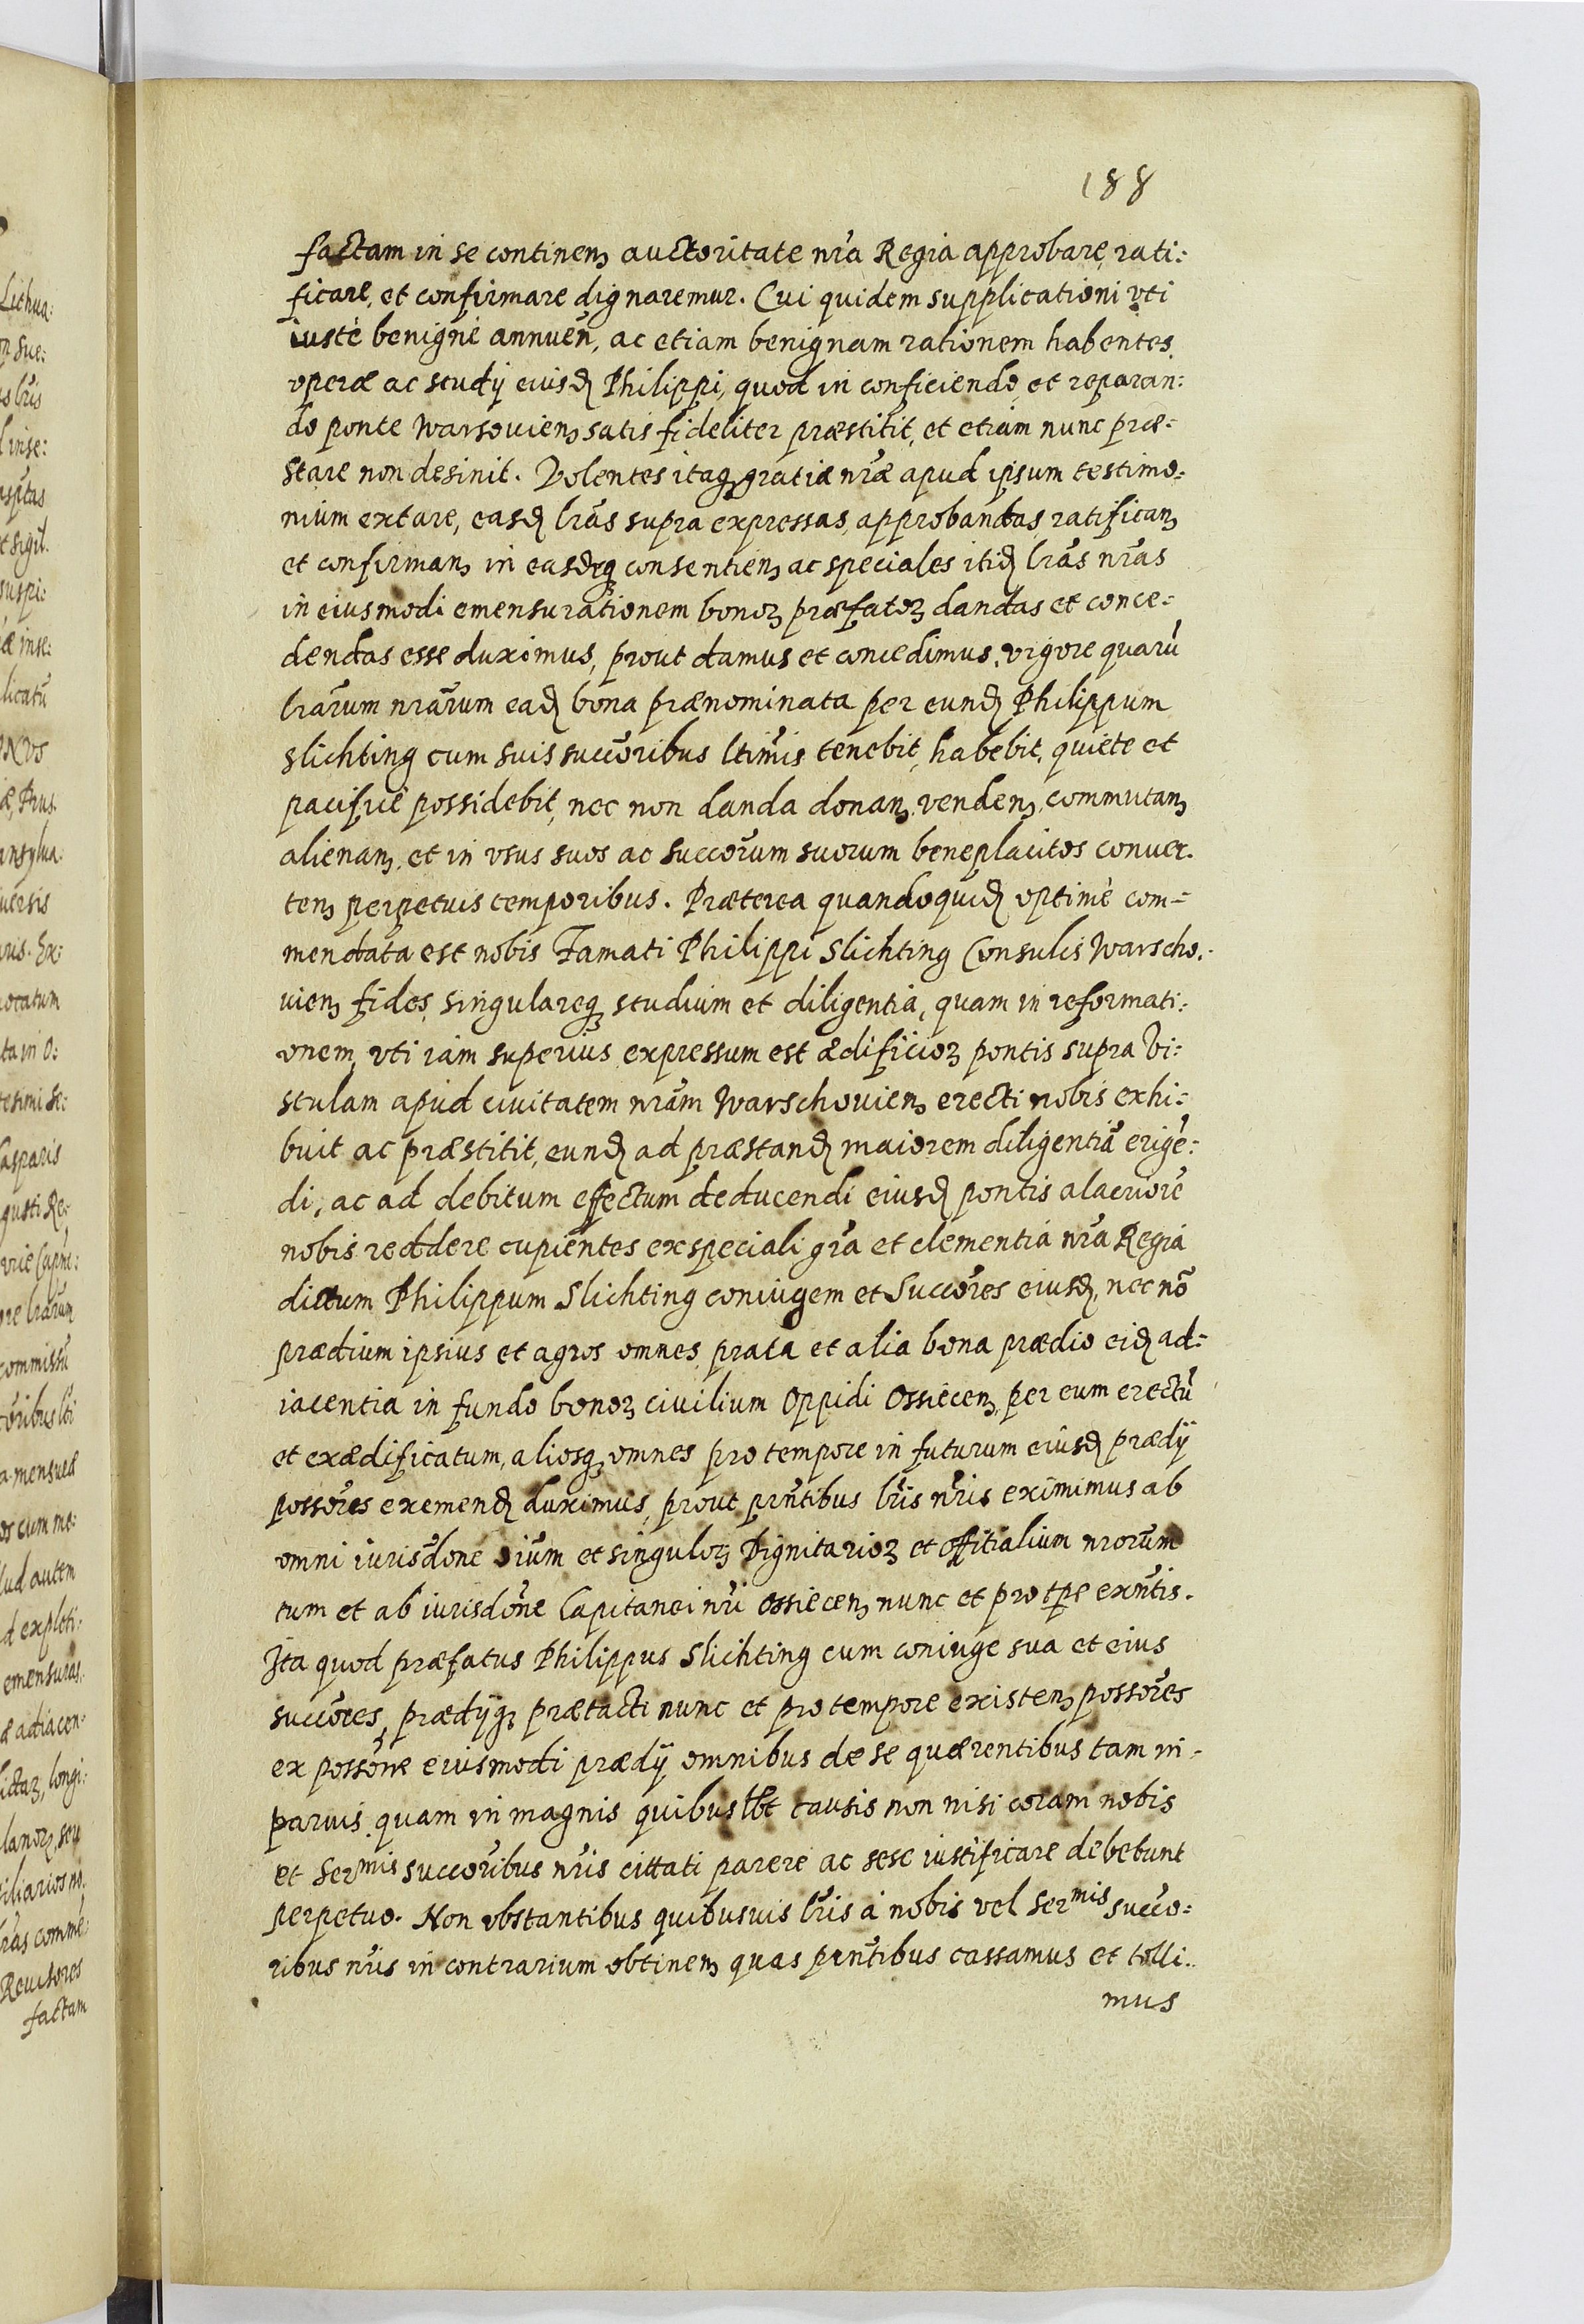 188
factam in se continenȝ auctoritate nr̃a Regia approbare, rati:
ficare, et confirmare dignaremur. Cui quidem supplicationi vti
iustè benignè annueñ, ac etiam benignam rationem habentes
operæ ac studÿ eiusdꝫ Philippi, quod in conficiendo, et reparan:
do ponte Warsouienȝ satis fideliter præstitit, et etiam nunc præ=
stare non desinit. Volentes itaqꝫ gratiæ nr̃æ apud ipsum testimo:
nium extare, easdꝫ lr̃as supra expressas, approbandas, ratificanȝ
et confirmanȝ in easdeqꝫ consentienȝ ac speciales itidꝫ lr̃as nr̃as
in eiusmodi emensurationem bonoꝝ præfatoꝝ dandas et conce=
dendas esse duximus, prout damus et concedimus, vigore quarũ
lr̃arum nr̃arum eadꝫ bona prænominata per eundꝫ Philippum
Slichting cum suis succõribus ltim̃is tenebit, habebit, quiete et
pacificè possidebit, nec non danda donanȝ, vendenȝ, commutanȝ
alienanȝ, et in vsus suos ac succõrum suorum beneplacitos conuer.
tenȝ perpetuis temporibus. Præterea quandoquidꝫ optimè com=
mendata est nobis Famati Philippi Slichting Consulis Warscho.
uienȝ fides, singulareqꝫ studium et diligentia, quam in reformati:
onem, vti iam superius expressum est ædificioꝝ pontis supra Vi:
stulam apud ciuitatem nr̃am Warschouienȝ erecti nobis exhi:
buit ac præstitit, eundꝫ ad præstandꝫ maiorem diligentiã erigẽ:
di, ac ad debitum effectum deducendi eiusdꝫ pontis alacriorẽ
nobis reddere cupientes ex speciali gr̃a et clementia nr̃a Regia
dictum Philippum Slichting coniugem et Succõres eiusdꝫ, nec nõ
prædium ipsius et agros omnes, prata et alia bona prædio eidꝫ ad=
iacentia in fundo bonoꝝ ciuilium Oppidi Ossiecenȝ, per eum erectũ
et exædificatum, aliosqꝫ omnes pro tempore in futurum eiusdꝫ prædÿ
possõres exemendꝫ duximus, prout prñtibus lr̃is nr̃is eximimus ab
omni iurisdõne oĩum et singuloꝝ Dignitarioꝝ et offitialium nrorũm
tum et ab iurisdõne Capitanei nr̃i Ossiecenȝ nunc et pro tp̃e exñtis.
Ita quod præfatus Philippus Slichting cum coniuge sua et eius
succõres, prædÿqꝫ prætacti nunc et pro tempore existenȝ possõres
ex possõne eiusmodi prædÿ omnibus de se quærentibus tam in
paruis, quam in magnis quibuslbt causis non nisi coram nobis
et Serᵐⁱˢ succõribus nr̃is cittati parere ac sese iustificare debebunt
perpetuo. Non obstantibus quibusuis lr̃is à nobis vel serᵐⁱˢ succo:
ribus nr̃is in contrarium obtinenȝ quas prñtibus cassamus et tolli..
mus